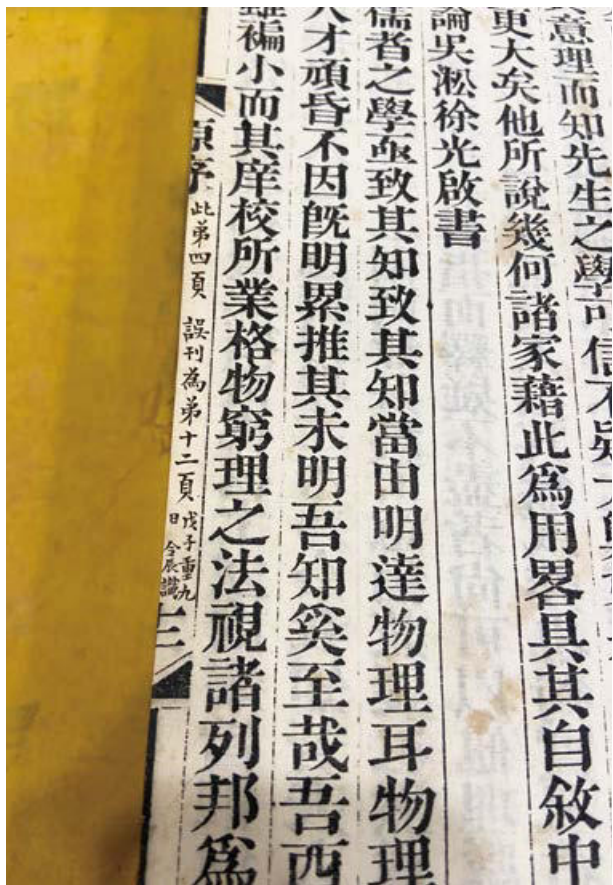 意理而知先生之學可信不疑大
更大矣他所說幾何諸家藉此爲用畧具其自敘中
論吳淞徐光啟書
儒者之學亟致其知致其知當由明達物理耳物理
人才頑昏不因旣明累推其未明吾知奚至哉吾西
雖褊小而其庠校所業格物窮理之法視諸列邦爲
原序
此弟四頁 誤刊為弟十二頁
戊子重九
日 令辰識